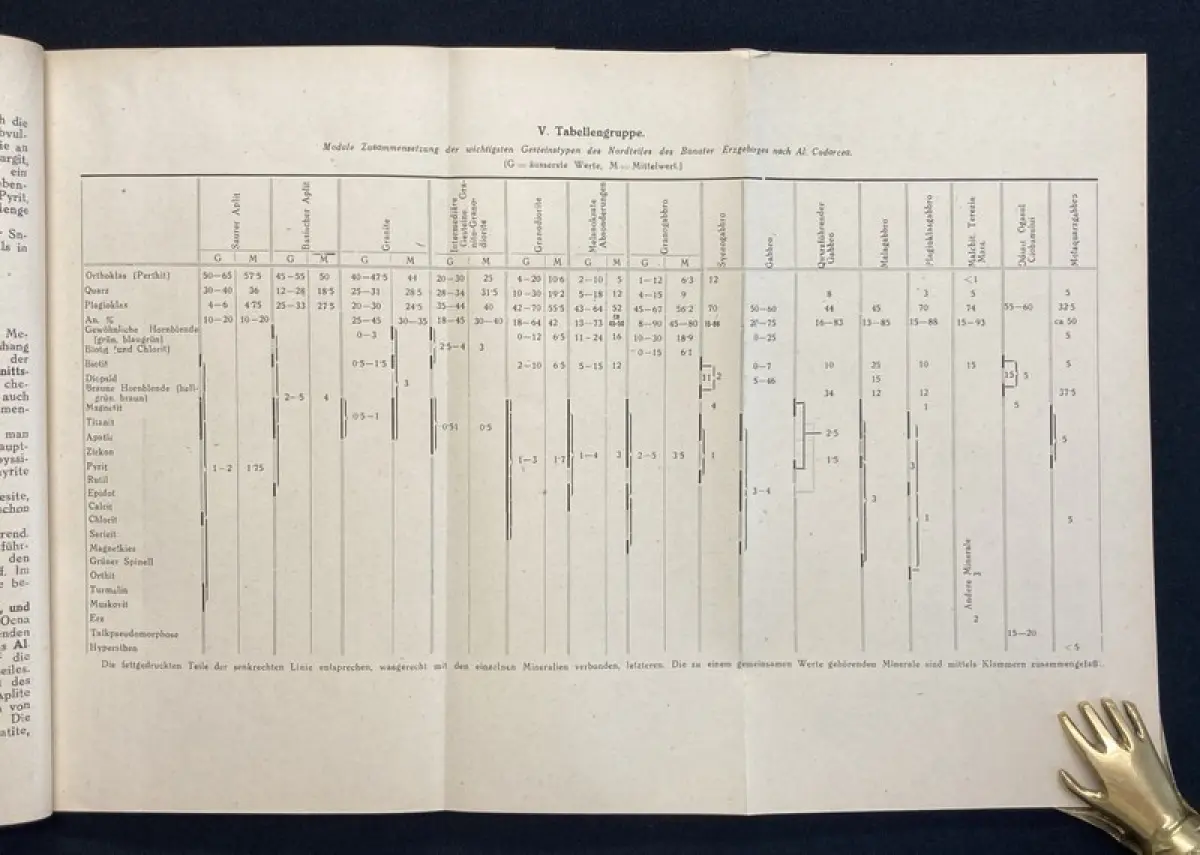 h die
bvul-
ie an
argit,
ein
oben-
Pyrit,
lenge
Sn-
ls in
Me-
hang
der
nitts-
che-
auch
men-
man
aupt-
byssi-
yrite
esite,
schon
rend.
führ-
den
d. Im
e be-
, und
Ocna
enden
s Al.
die
eiles.
des
Aplite
von
Die
atite,
V. Tabellengruppe.
Modale Zusammensetzung der wichtigsten Gesteinstypen des Nordteiles des Banater Erzgebirges nach Al. Codarcea.
(G = äusserste Werte, M = Mittelwert.)
Saurer Aplit Basischer Aplit Granite Intermediäre Gesteine Granite-Granodiorite Granodiorite Melanokrate Absonderungen Granogabbro Syenogabbro Gabbro Quarzführender Gabbro Melagabbro Plagioklasgabbro Malchit. Terezia Mare. Odinit Ogasul Ciobanului Melaquarzgabbro
G M G M G M G M G M G M G M
Orthoklas (Perthit) 50—65 57·5 45—55 50 40—47·5 44 20—30 25 4—20 10·6 2—10 5 1—12 6·3 12 <1
Quarz 30—40 36 12—28 18·5 25—31 28·5 28—34 31·5 10—30 19·2 5—18 12 4—15 9 8 3 5 5
Plagioklas 4—6 4·75 25—33 27·5 20—30 24·5 35—44 40 42—70 55·5 43—64 52 45—67 56·2 70 50—60 44 45 70 74 55—60 32·5
An. % 10—20 10—20 25—45 30—35 18—45 30—40 18—64 42 13—73 8—90 45—80 25—75 16—83 13—85 15—88 15—93 ca 50
Gewöhnliche Hornblende (grün, blaugrün) 0—3 0—12 6·5 11—24 16 10—30 18·9 0—25 5
Biotit (und Chlorit) 2·5—4 3 0—15 6·1
Biotit 0·5—1·5 2—10 6·5 5—15 12 0—7 10 25 10 15 5
Diopsid 3 11 2 5—46 15 15 5
Braune Hornblende (hellgrün, braun) 2—5 4 34 12 12 37·5
Magnetit 4 1 5
Titanit 0·5—1
Apatit 0·51 0·5 2·5 5
Zirkon 1—3 1·7 1—4 3 2—5 3·5 1 1·5
Pyrit 1—2 1·75 3
Rutil
Epidot 3—4 3
Calcit
Chlorit 1 5
Sericit
Magnetkies
Grüner Spinell
Orthit
Turmalin
Muskovit
Andere Minerale
Erz 2
Talkpseudomorphose 15—20
Hypersthen <5
Die fettgedruckten Teile der senkrechten Linie entsprechen, wagerecht mit den einzelnen Mineralien verbunden, letzteren. Die zu einem gemeinsamen Werte gehörenden Minerale sind mittels Klammern zusammengefaßt.